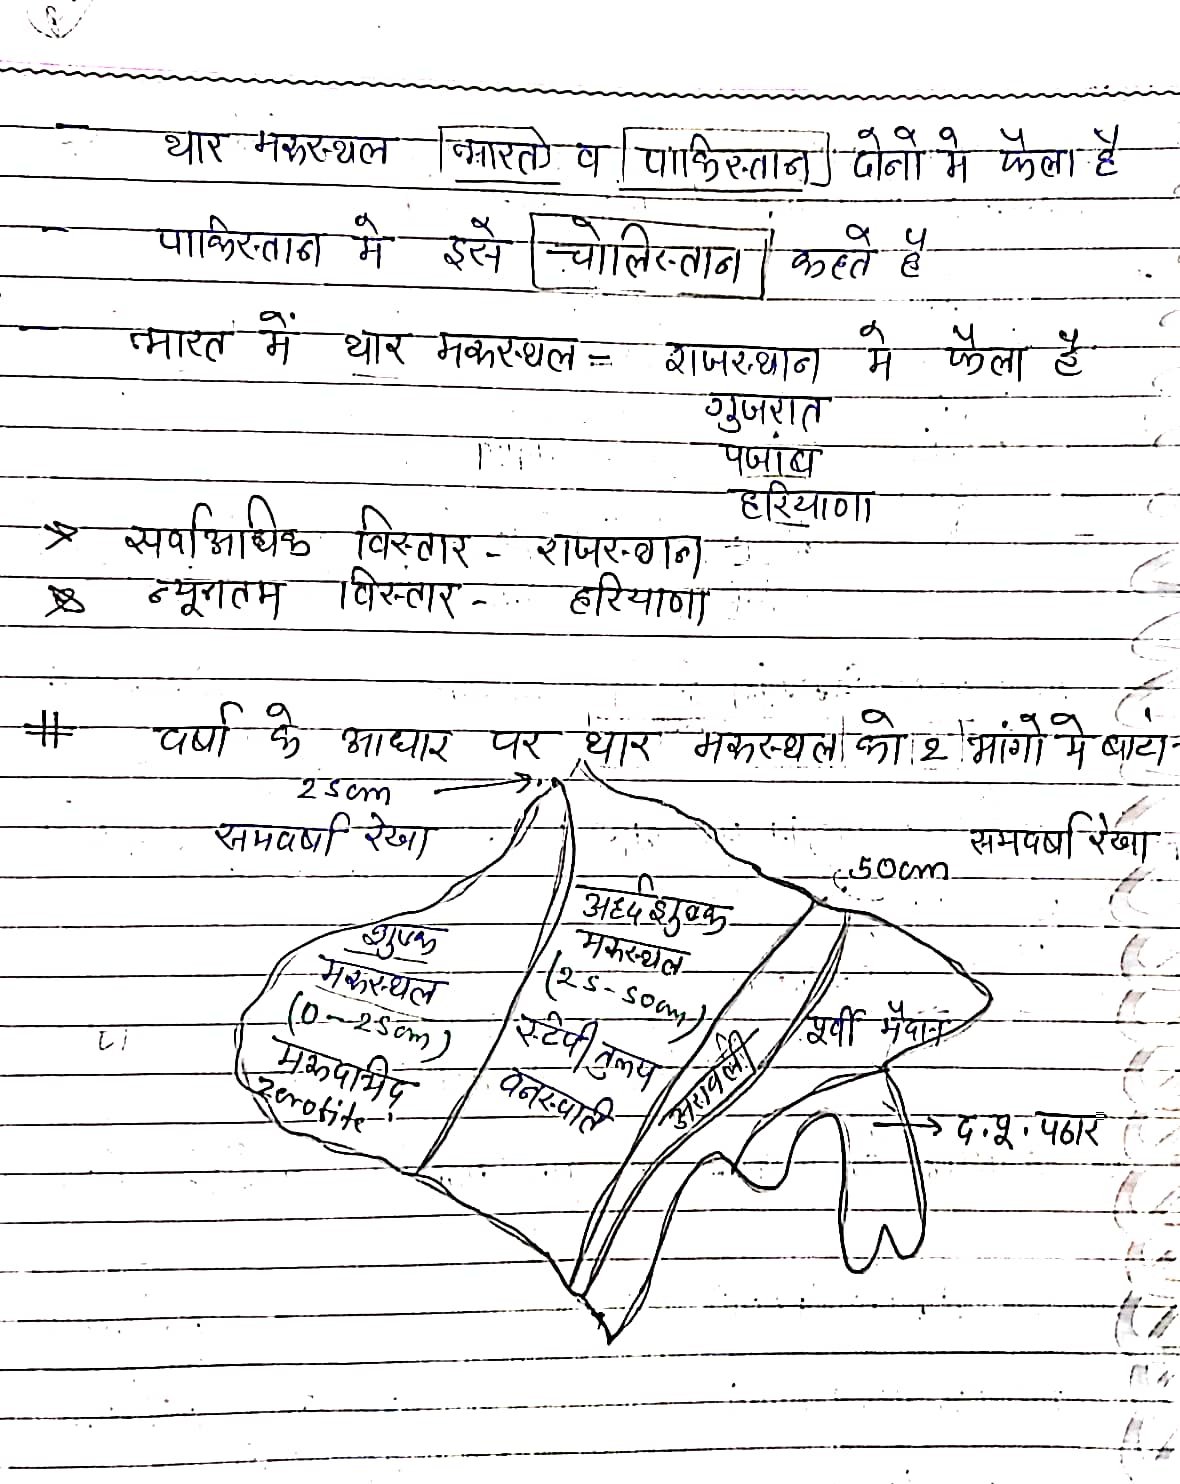 थार मरूस्थल भारत व पाकिस्तान दोनो मे फैला है
पाकिस्तान मे इसे चोलिस्तान कहते है
भारत में थार मरूस्थल = राजस्थान मे फैला है
गुजरात
पजांब
हरियाणा
सर्वाअधिक विस्तार - राजस्थान
न्यूंनतम विस्तार - हरियाणा
# वर्षा के आधार पर थार मरूस्थल को 2 भांगो मे बाटां
25cm
समवर्षा रेखा
समवर्षा रेखा
50cm
शुष्क
मरूस्थल
(0-25cm)
मरूदभिद
Zerofite
अर्ध्दशुष्क
मरूस्थल
(25-50cm)
स्टेपी तुल्य
वनस्पति
अरावली
पूर्वी मैदान
द.पू. पठार